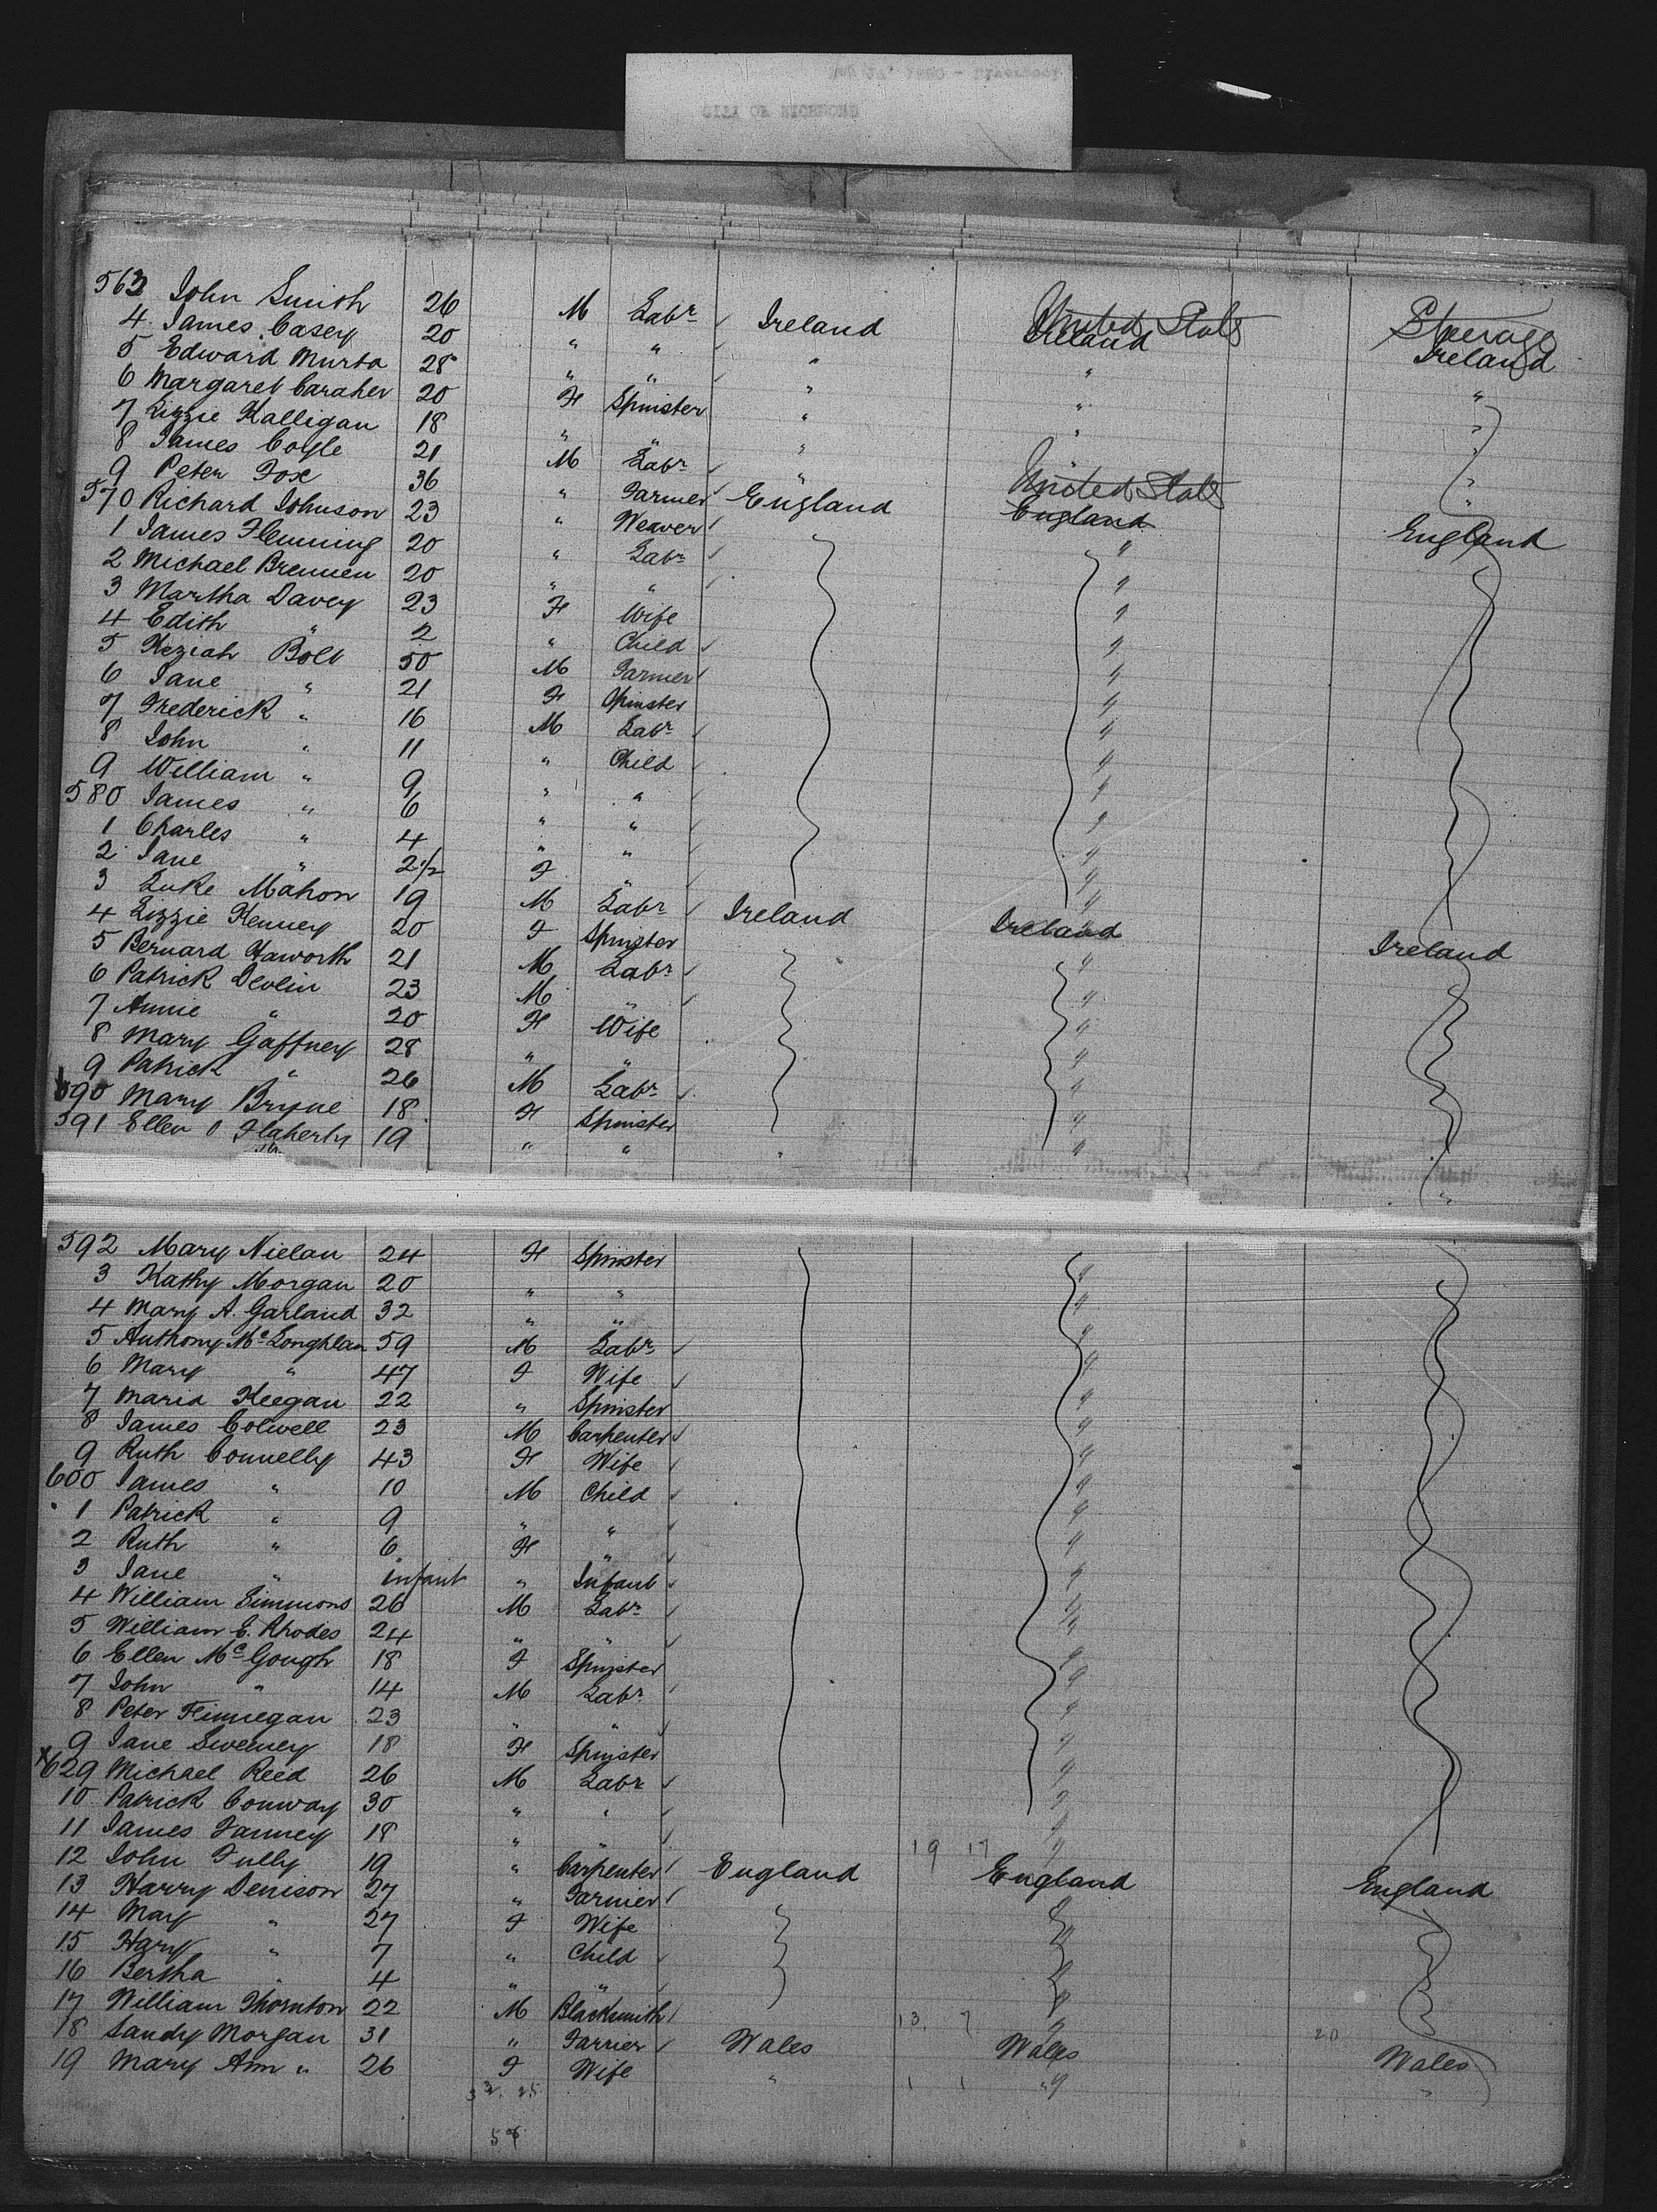 CITY OF RICHMOND
563 John Smith 26 M Labr Ireland United States Steerage
4 James Casey 20 " " " Ireland Ireland
5 Edward Murta 28 " " " " "
6 Margaret Caraher 20 F Spinster " " "
7 Lizzie Halligan 18 " " " " "
8 James Coyle 21 M Labr " "
9 Peter Fox 36 " Farmer England United States
570 Richard Johnson 23 " Weaver England England
1 James Flemming 20 " Labr "
2 Michael Brennen 20 " " "
3 Martha Davey 23 F Wife "
4 Edith " 2 " Child "
5 Keziah Bolt 50 M Farmer "
6 Jane " 21 F Spinster "
7 Frederick " 16 M Labr "
8 John " 11 " Child "
9 William " 9 " " "
580 James " 6 " " "
1 Charles " 4 " " "
2 Jane " 2 1/2 F " "
3 Luke Mahon 19 M Labr Ireland "
4 Lizzie Kenney 20 F Spinster Ireland Ireland
5 Bernard Haworth 21 M Labr "
6 Patrick Devlin 23 M " "
7 Annie " 20 F Wife "
8 Mary Gaffney 28 " " "
9 Patrick " 26 M Labr "
590 Mary Bryne 18 F Spinster "
591 Ellen O Flaherty 19 " " " "
592 Mary Nielan 24 F Spinster "
3 Kathy Morgan 20 " " "
4 Mary A. Garland 32 " " "
5 Anthony Mc Loughlan 59 M Labr "
6 Mary " 47 F Wife "
7 Maria Keegan 22 " Spinster "
8 James Colwell 23 M Carpenter "
9 Ruth Connelly 43 F Wife "
600 James " 10 M Child "
1 Patrick " 9 " " "
2 Ruth " 6 F " "
3 Jane " infant " Infant "
4 William Simmons 26 M Labr "
5 William E. Rhodes 24 " " "
6 Ellen Mc Gough 18 F Spinster "
7 John " 14 M Labr "
8 Peter Finnegan 23 " " "
9 Jane Sweeney 18 F Spinster "
x629 Michael Reed 26 M Labr "
10 Patrick Conway 30 " " "
11 James Fanney 18 " " "
12 John Tully 19 " Carpenter England 19 17 England England
13 Harry Denison 27 " Farmer "
14 Mary " 27 F Wife "
15 Hary " 7 " Child "
16 Bertha " 4 " " "
17 William Thornton 22 M Blacksmith 13 7
18 Sandy Morgan 31 " Farrier Wales Wales 20 Wales
19 Mary Ann " 26 F Wife " 1 1 " "